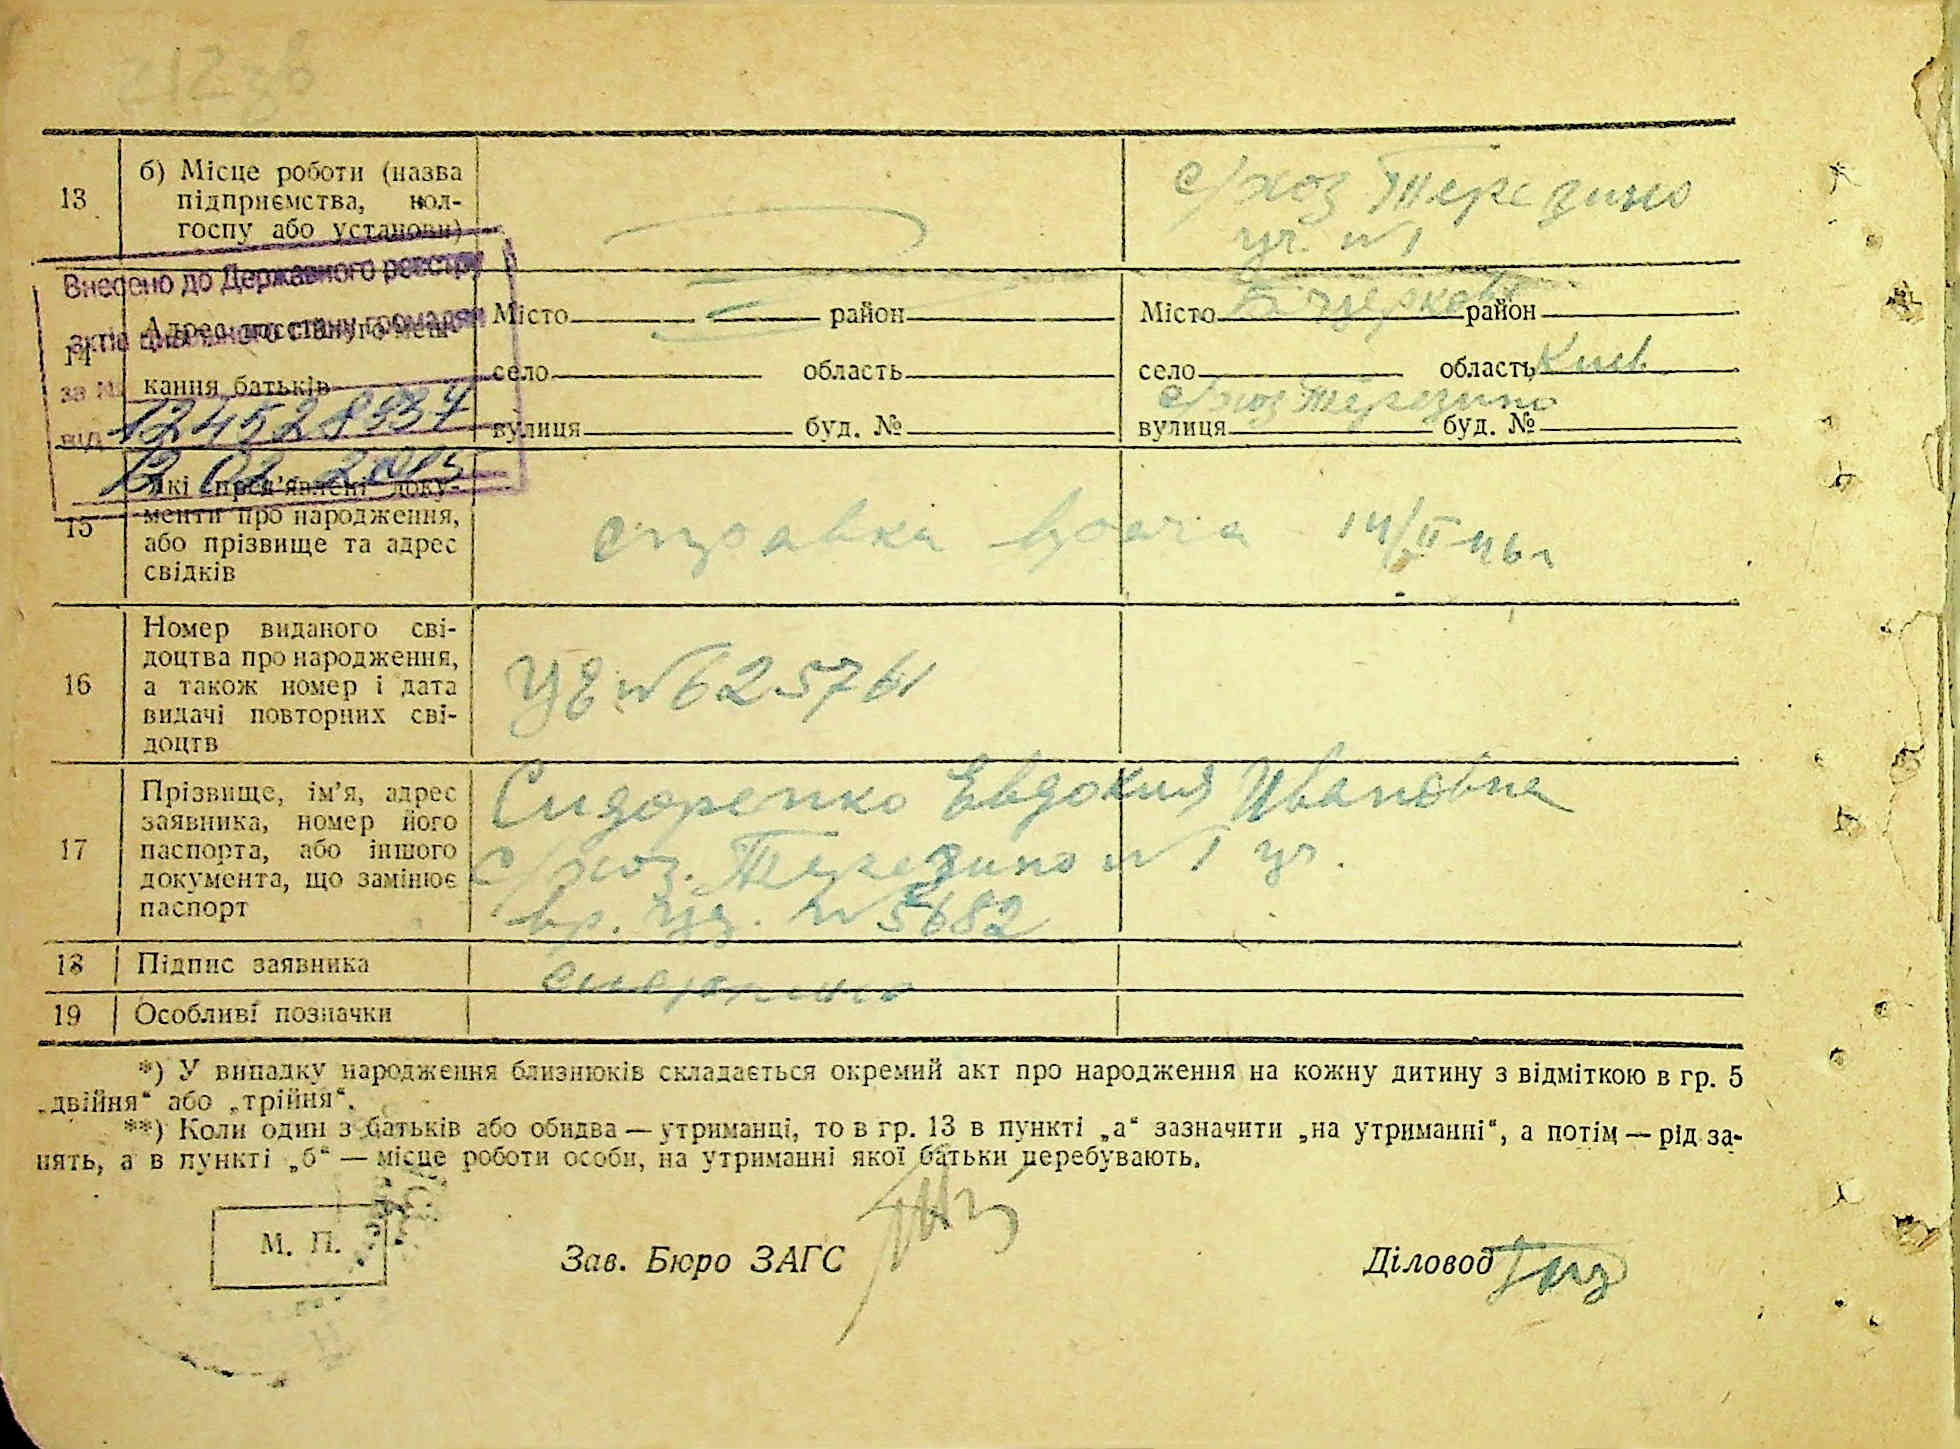 212 зв
13
б) Місце роботи (назва
підприємства, кол-
госпу або установи)
с/хоз Терезино
уч. №1
Внесено до Державного реєстру
актів цивільного стану громадян
за №
12452893
від 12 02
14
Адрес постійного меш-
кання батьків
Місто район
село область
вулиця буд. №
Місто Б Церковь район
село область Киев
с/хоз Терезино
вулиця буд. №
15
Які пред'явлені доку-
менти про народження,
або прізвище та адрес
свідків
справка врача 14/II-46г
16
Номер виданого сві-
доцтва про народження,
а також номер і дата
видачі повторних сві-
доцтв
№625761
17
Прізвище, ім'я, адрес
заявника, номер його
паспорта, або іншого
документа, що замінює
паспорт
Сидоренко Евдокия Ивановна
с/хоз. Терезино №1 уч.
вр. уд. №5682
18
Підпис заявника
Сидоренко
19
Особливі позначки
*) У випадку народження близнюків складається окремий акт про народження на кожну дитину з відміткою в гр. 5
„двійня“ або „трійня“.
**) Коли один з батьків або обидва — утриманці, то в гр. 13 в пункті „а“ зазначити „на утриманні“, а потім — рід за-
нять, а в пункті „б“ — місце роботи особи, на утриманні якої батьки перебувають.
М. П.
Зав. Бюро ЗАГС
Діловод